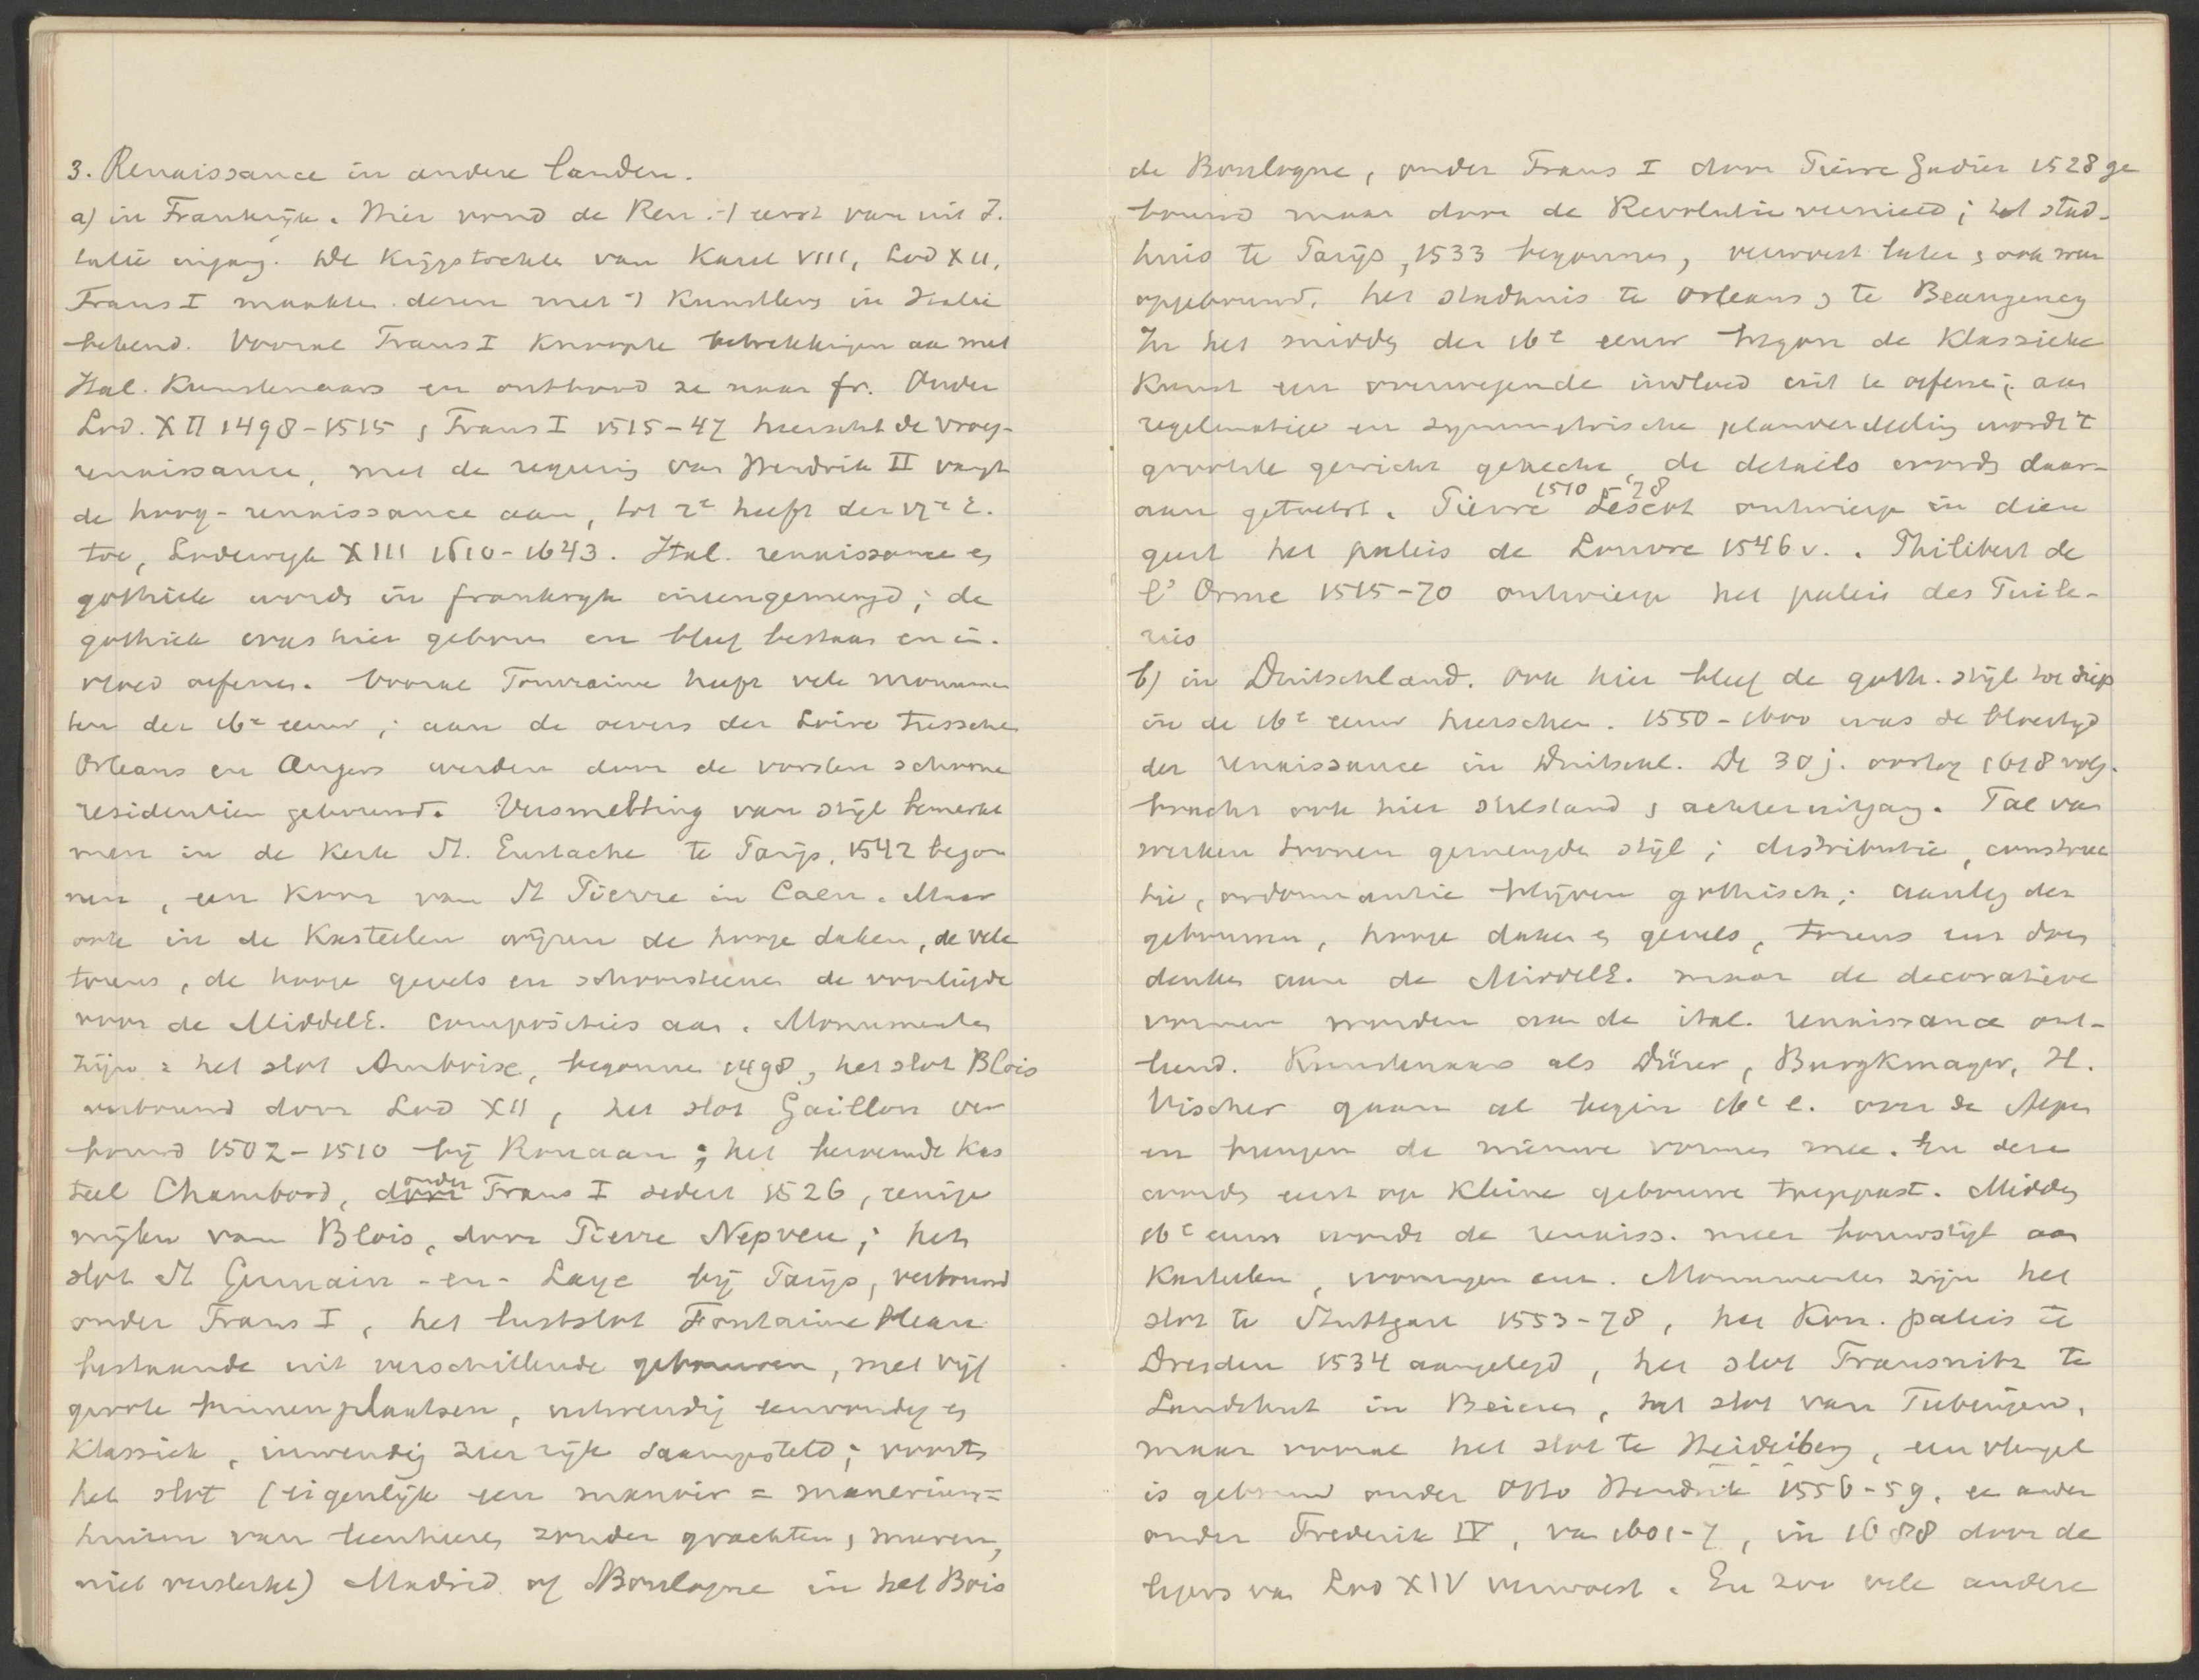 3. Renaissance in andere landen.
a) in Frankrijk. Hier vond de Ren. 't eerst van uit I-
talië ingang. De Krijgstochten van Karel VIII, Lod XII,
Frans I maakten dezen met 't Kunstleven in Italië
bekend. Vooral Frans I knoopte betrekkingen aan met
Ital. Kunstenaars en ontbood ze naar fr. Onder
Lod. XII 1498-1515, Frans I 1515-47 heerscht de vroeg-
renaissance, met de regeering van Hendrik II vangt
de hoog-renaissance aan, tot 2e helft der 17e E.
toe, Lodewijk XIII 1610-1643. Ital. renaissance en
gothiek wordt in frankryk ineengemengd; de
gothiek was hier geboren en bleef bestaan en in-
vloed oefenen. Vooral Touraine heeft vele monumen
ten der 16e eeuw; aan de oevers der Loire tusschen
Orleans en Angers werden door de vorsten schoone
residentien gebouwd. Versmelting van stijl bemerkt
men in de Kerk St. Eustache te Parijs, 1542 begon
nen, een Koor van St Pierre in Caen. Maar
ook in de Kasteelen wijzen de hooge daken, de vele
torens, de hooge gevels en schoorsteenen de voorliefde
voor de MiddelE. composities aan. Monumenten
zijn: het slot Amboise, begonnen 1498, het slot Blois
verbouwd door Lod XII, het slot Gaillon ver
bouwd 1502-1510 bij Rouaan; het beroemde Kas
teel Chambord, onder Frans I sedert 1526, eenige
mijlen van Blois, door Pierre Nepveu; het
slot St Germain-en-Laye bij Parijs, verbouwd
onder Frans I, het lustslot Fontainebleau
bestaande uit verschillende gebouwen, met vijf
groote binnenplaatsen, uitwendig eenvoudig en
Klassiek, inwendig zeer rijk saamgesteld; voorts
het slot (eigenlijk een manoir = manerium =
huizen van leenheeren zonder grachten, muren,
niet versterkt) Madrid of Boulogne in het Bois
de Boulogne, onder Frans I door Pierre Gadier 1528 ge
bouwd maar door de Revolutie vernield; het stad-
huis te Parijs, 1533 begonnen, verwoest later, ook weer
opgebouwd, het stadhuis te Orleans, te Beaugency
In het midden der 16e eeuw begon de Klassieke
Kunst een overwegende invloed uit te oefenen; aan
regelmatige en symmetrische planverdeeling wordt 't
grootste gewicht gehecht, de details worden daar-
aan getoetst. Pierre Lescot 1510-'78 ontwierp in dien
geest het paleis de Louvre 1546 v.. Philibert de
l'Orme 1515-70 ontwierp het paleis des Tuile-
ries
b) in Duitschland. Ook hier bleef de goth. stijl tot diep
in de 16e eeuw heerschen. 1550-1600 was de bloeityd
der renaissance in Duitschl. De 30 j. oorlog 1618 volg.
bracht ook hier stilstand, achteruitgang. Tal van
werken toonen gemengden stijl; distributie, construc
tie, ordonnantie blijven gothisch; aanleg der
gebouwen, hooge daken en gevels, torens enz doen
denken aan de MiddelE. maar de decoratieve
vormen worden aan de ital. renaissance ont-
leend. Kunstenaars als Dürer, Burgkmayer, H.
Vischer gaan al begin 16e e. over de Alpen
en brengen de nieuwe vormen mee. En deze
worden eerst op kleine gebouwen toegepast. Midden
16e eeuw wordt de renaiss. meer bouwstijl aan
Kasteelen, woningen enz. Monumenten zijn het
slot te Stuttgart 1553-78, het Kon. paleis te
Dresden 1534 aangelegd, het slot Trausnitz te
Landshut in Beieren, het slot van Tubingen,
maar vooral het slot te Heidelberg, een vleugel
is gebouwd onder Otto Hendrik 1556-59, een ander
onder Frederik IV, van 1601-7, in 1688 door de
legers van Lod XIV verwoest. En zoo vele andere